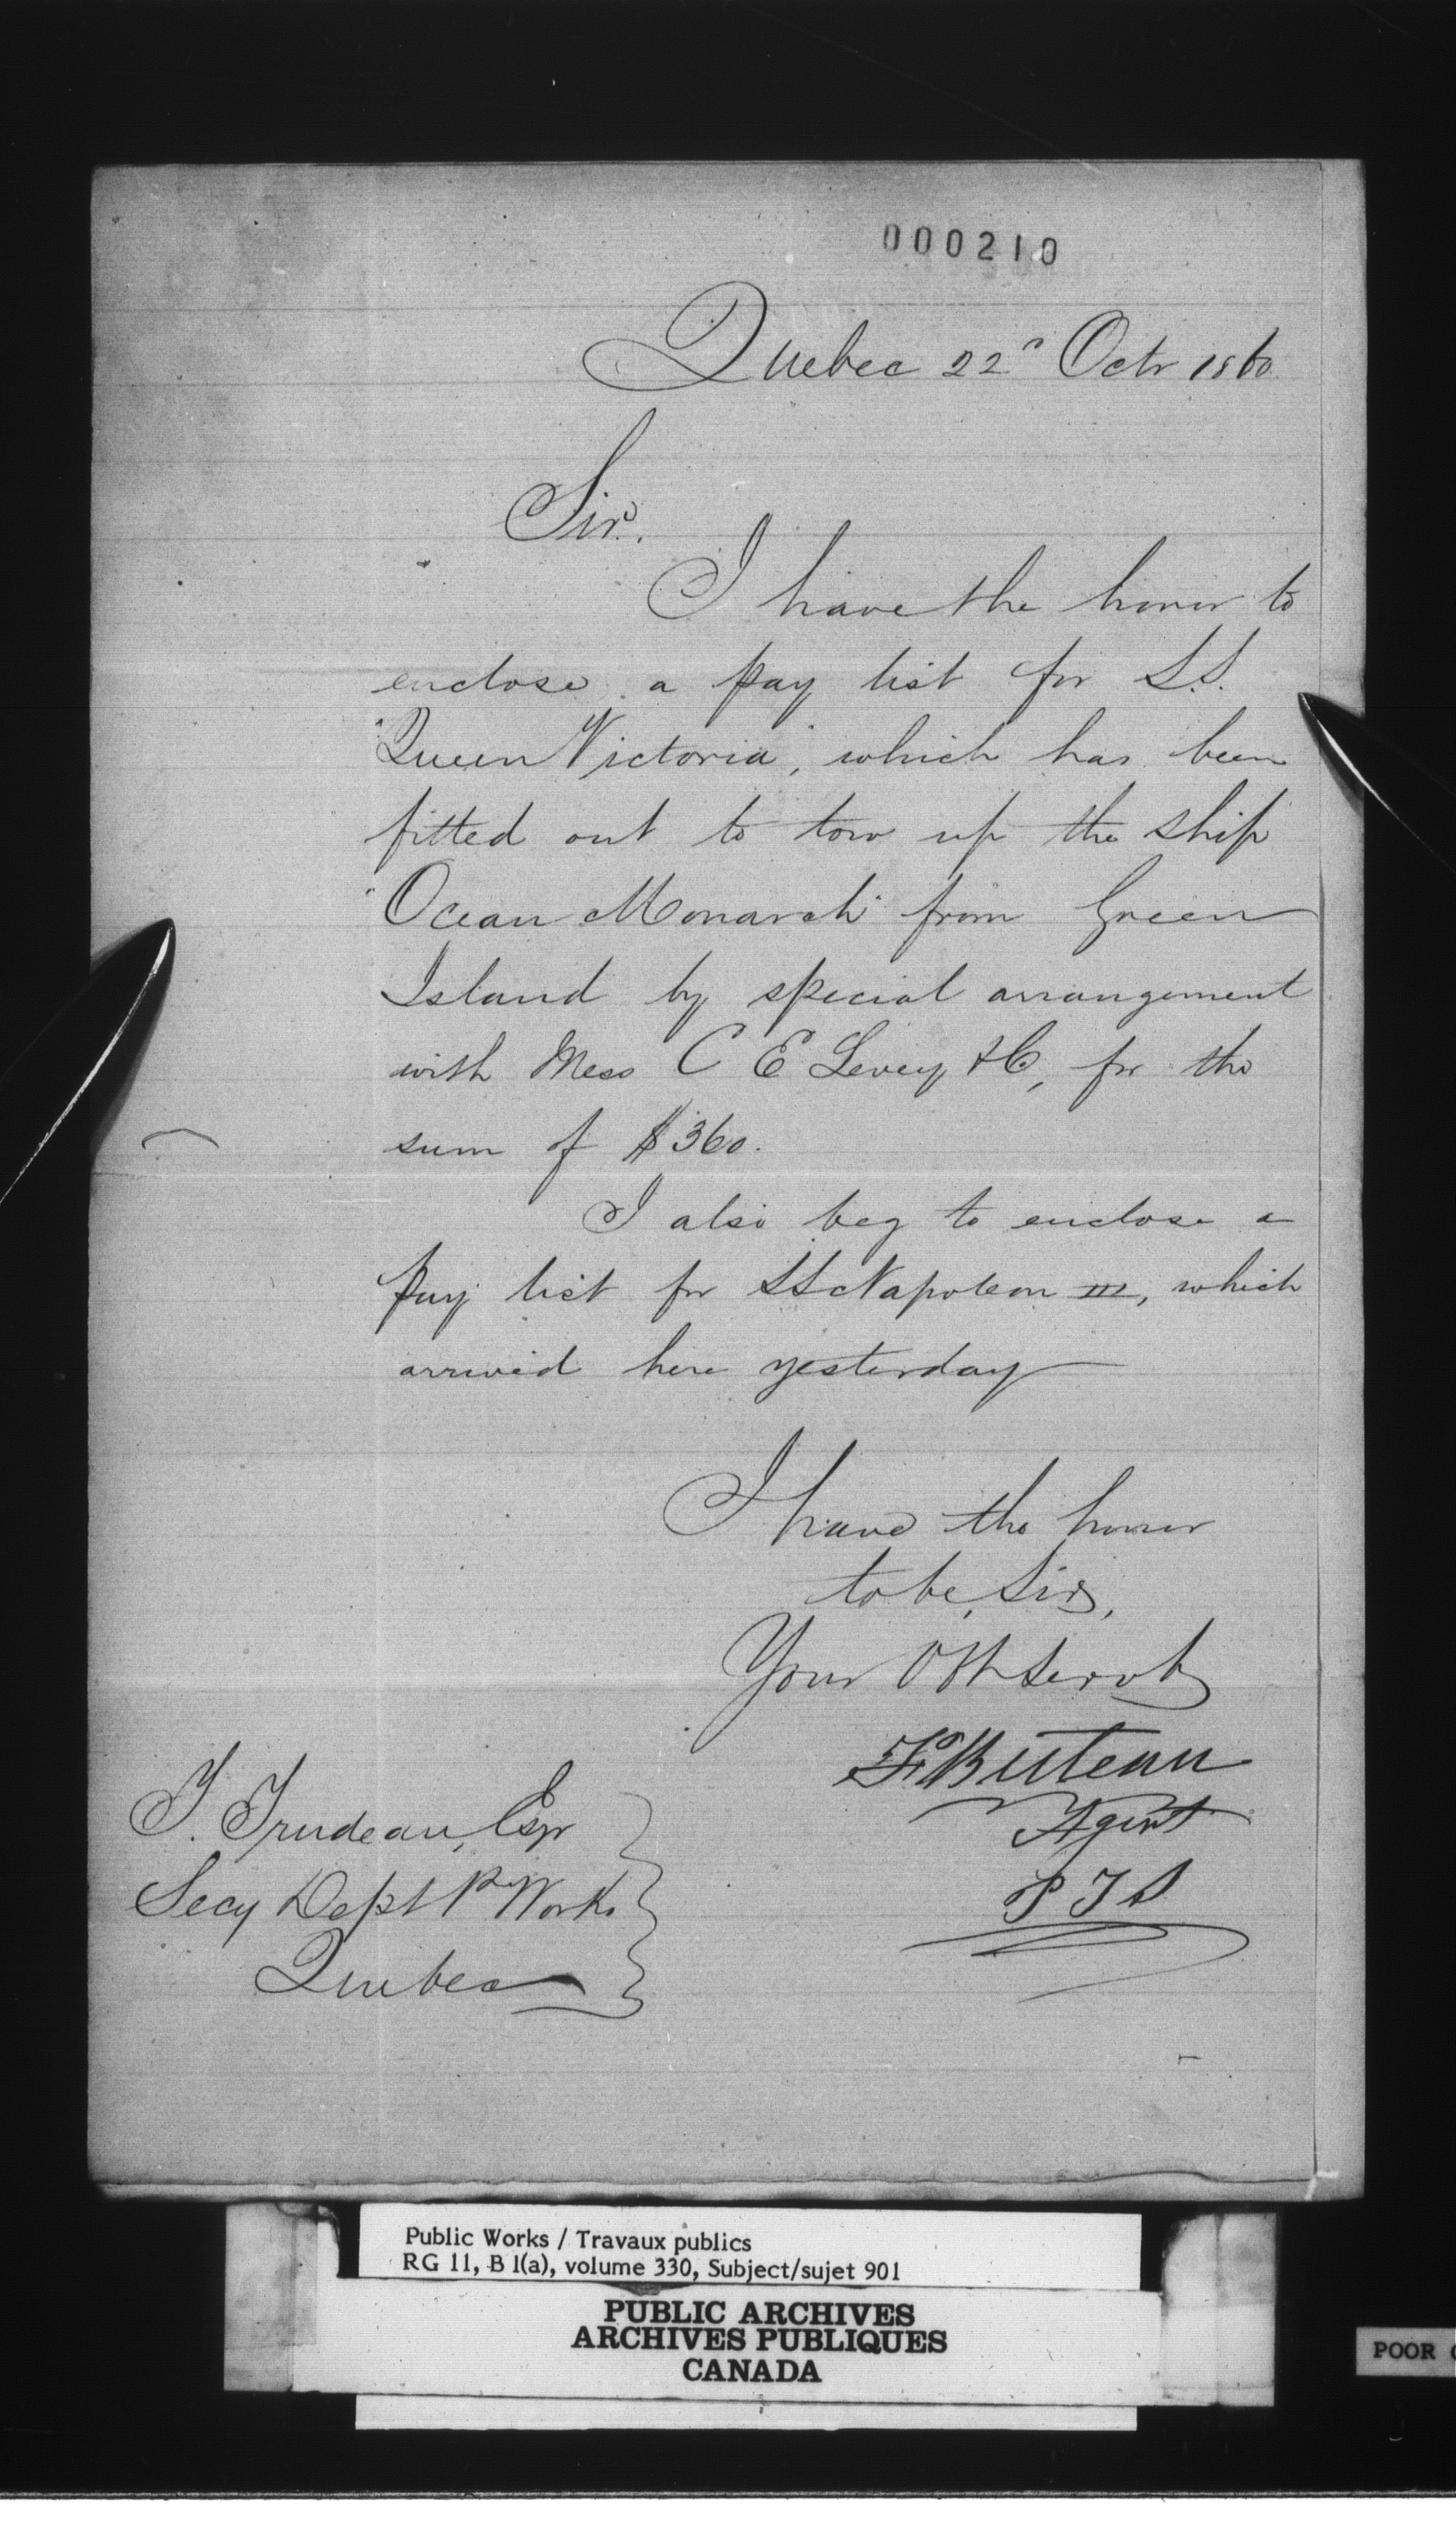 000210
Quebec 22d Octr 1860
Sir,
I have the honor to
enclose a pay list for S.S.
"Queen Victoria", which has been
fitted out to tow up the ship
"Ocean Monarch" from Green
Island by special arrangement
with Mess C E Levey & Co, for the
sum of $360.
I also beg to enclose a
pay list for SS Napoleon III, which
arrived here yesterday
I have the honor
to be, Sir,
Your Obt Servt
F. Buteau
Agent
P T S
T. Trudeau, Esqr
Secy Dept P. Works
Quebec
Public Works / Travaux publics
RG 11, B 1(a), volume 330, Subject/sujet 901
PUBLIC ARCHIVES
ARCHIVES PUBLIQUES
CANADA
POOR